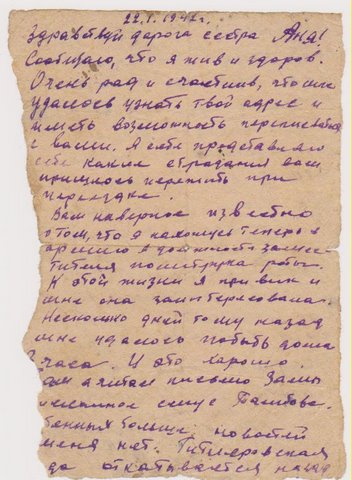 22.I.1942г.
Здравствуй дорога сестра Аня!
Сообщаю, что я жив и здоров.
Очень рад и счастлив, что мне
удалось узнать твой адрес и
иметь возможность переписываться
с вами. Я себе представляю
какие страдания вам
пришлось пережить при
переезде.
Вам наверное известно
о том, что я нахожусь теперь в
армии в должности замес-
тителя политрука роты.
К этой жизни я привык и
мне она заинтересовала.
Несколько дней тому назад
мне удалось побыть дома
2 часа. И это хорошо.
письмо Замы
из Тамбова.
больше новостей
меня нет. Гитлеровская
откатывается назад